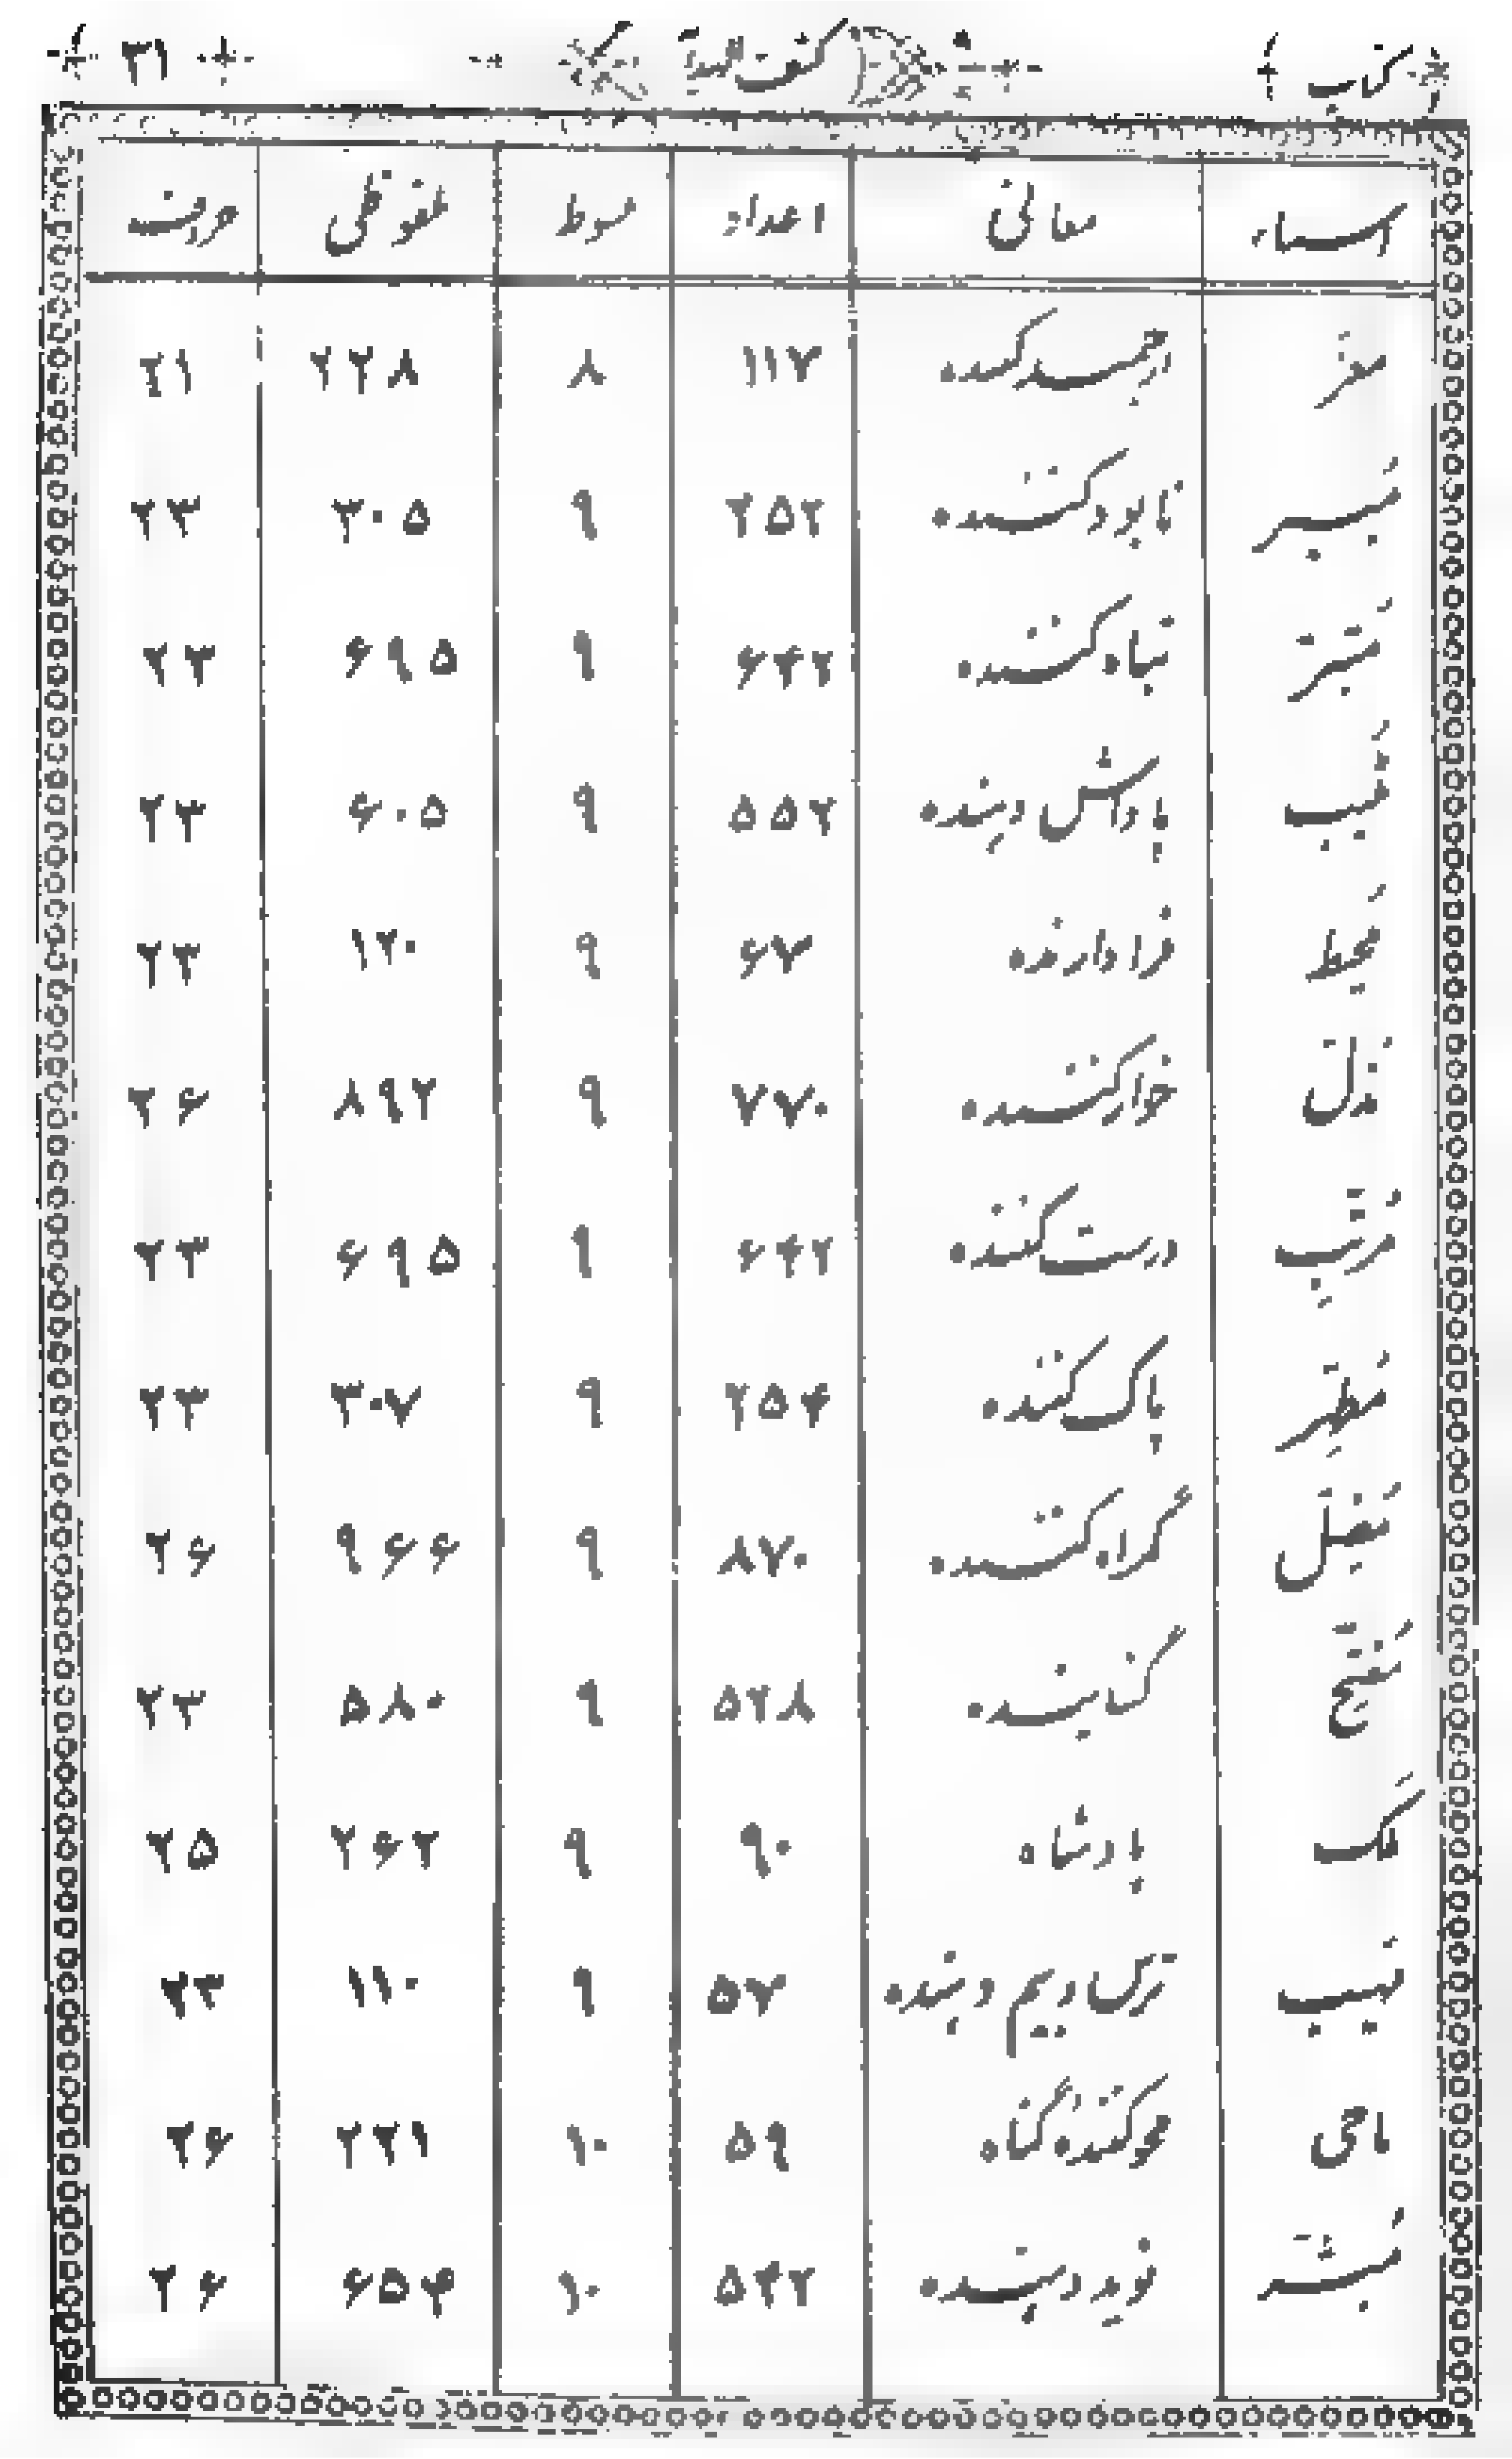 کتاب کشف الهدیة ۳۱
اسماء معانی اعداد مبسوط ملفوظی حروف
معز ارجمند کننده ۱۱۷ ۸ ۲۲۸ ۲۱
مبیر نابود کننده ۲۵۲ ۹ ۳۰۵ ۲۳
متبر تباه کننده ۶۴۲ ۹ ۶۹۵ ۲۳
مثیب پاداش دهنده ۵۵۲ ۹ ۶۰۵ ۲۳
محیط فرا دارنده ۶۷ ۹ ۱۲۰ ۲۳
مذل خوار کننده ۷۷۰ ۹ ۸۹۲ ۲۶
مرتب درست کننده ۶۴۲ ۹ ۶۹۵ ۲۳
مطهر پاک کننده ۲۵۴ ۹ ۳۰۷ ۲۳
مضل گمراه کننده ۸۷۰ ۹ ۹۶۶ ۲۶
مفتح گشاینده ۵۲۸ ۹ ۵۸۰ ۲۳
ملک پادشاه ۹۰ ۹ ۲۶۲ ۲۵
مهیب ترس و بیم دهنده ۵۷ ۹ ۱۱۰ ۲۳
ماحی محو کنندهٔ گناه ۵۹ ۱۰ ۲۲۱ ۲۶
مبشر نوید دهنده ۵۴۲ ۱۰ ۶۵۴ ۲۶